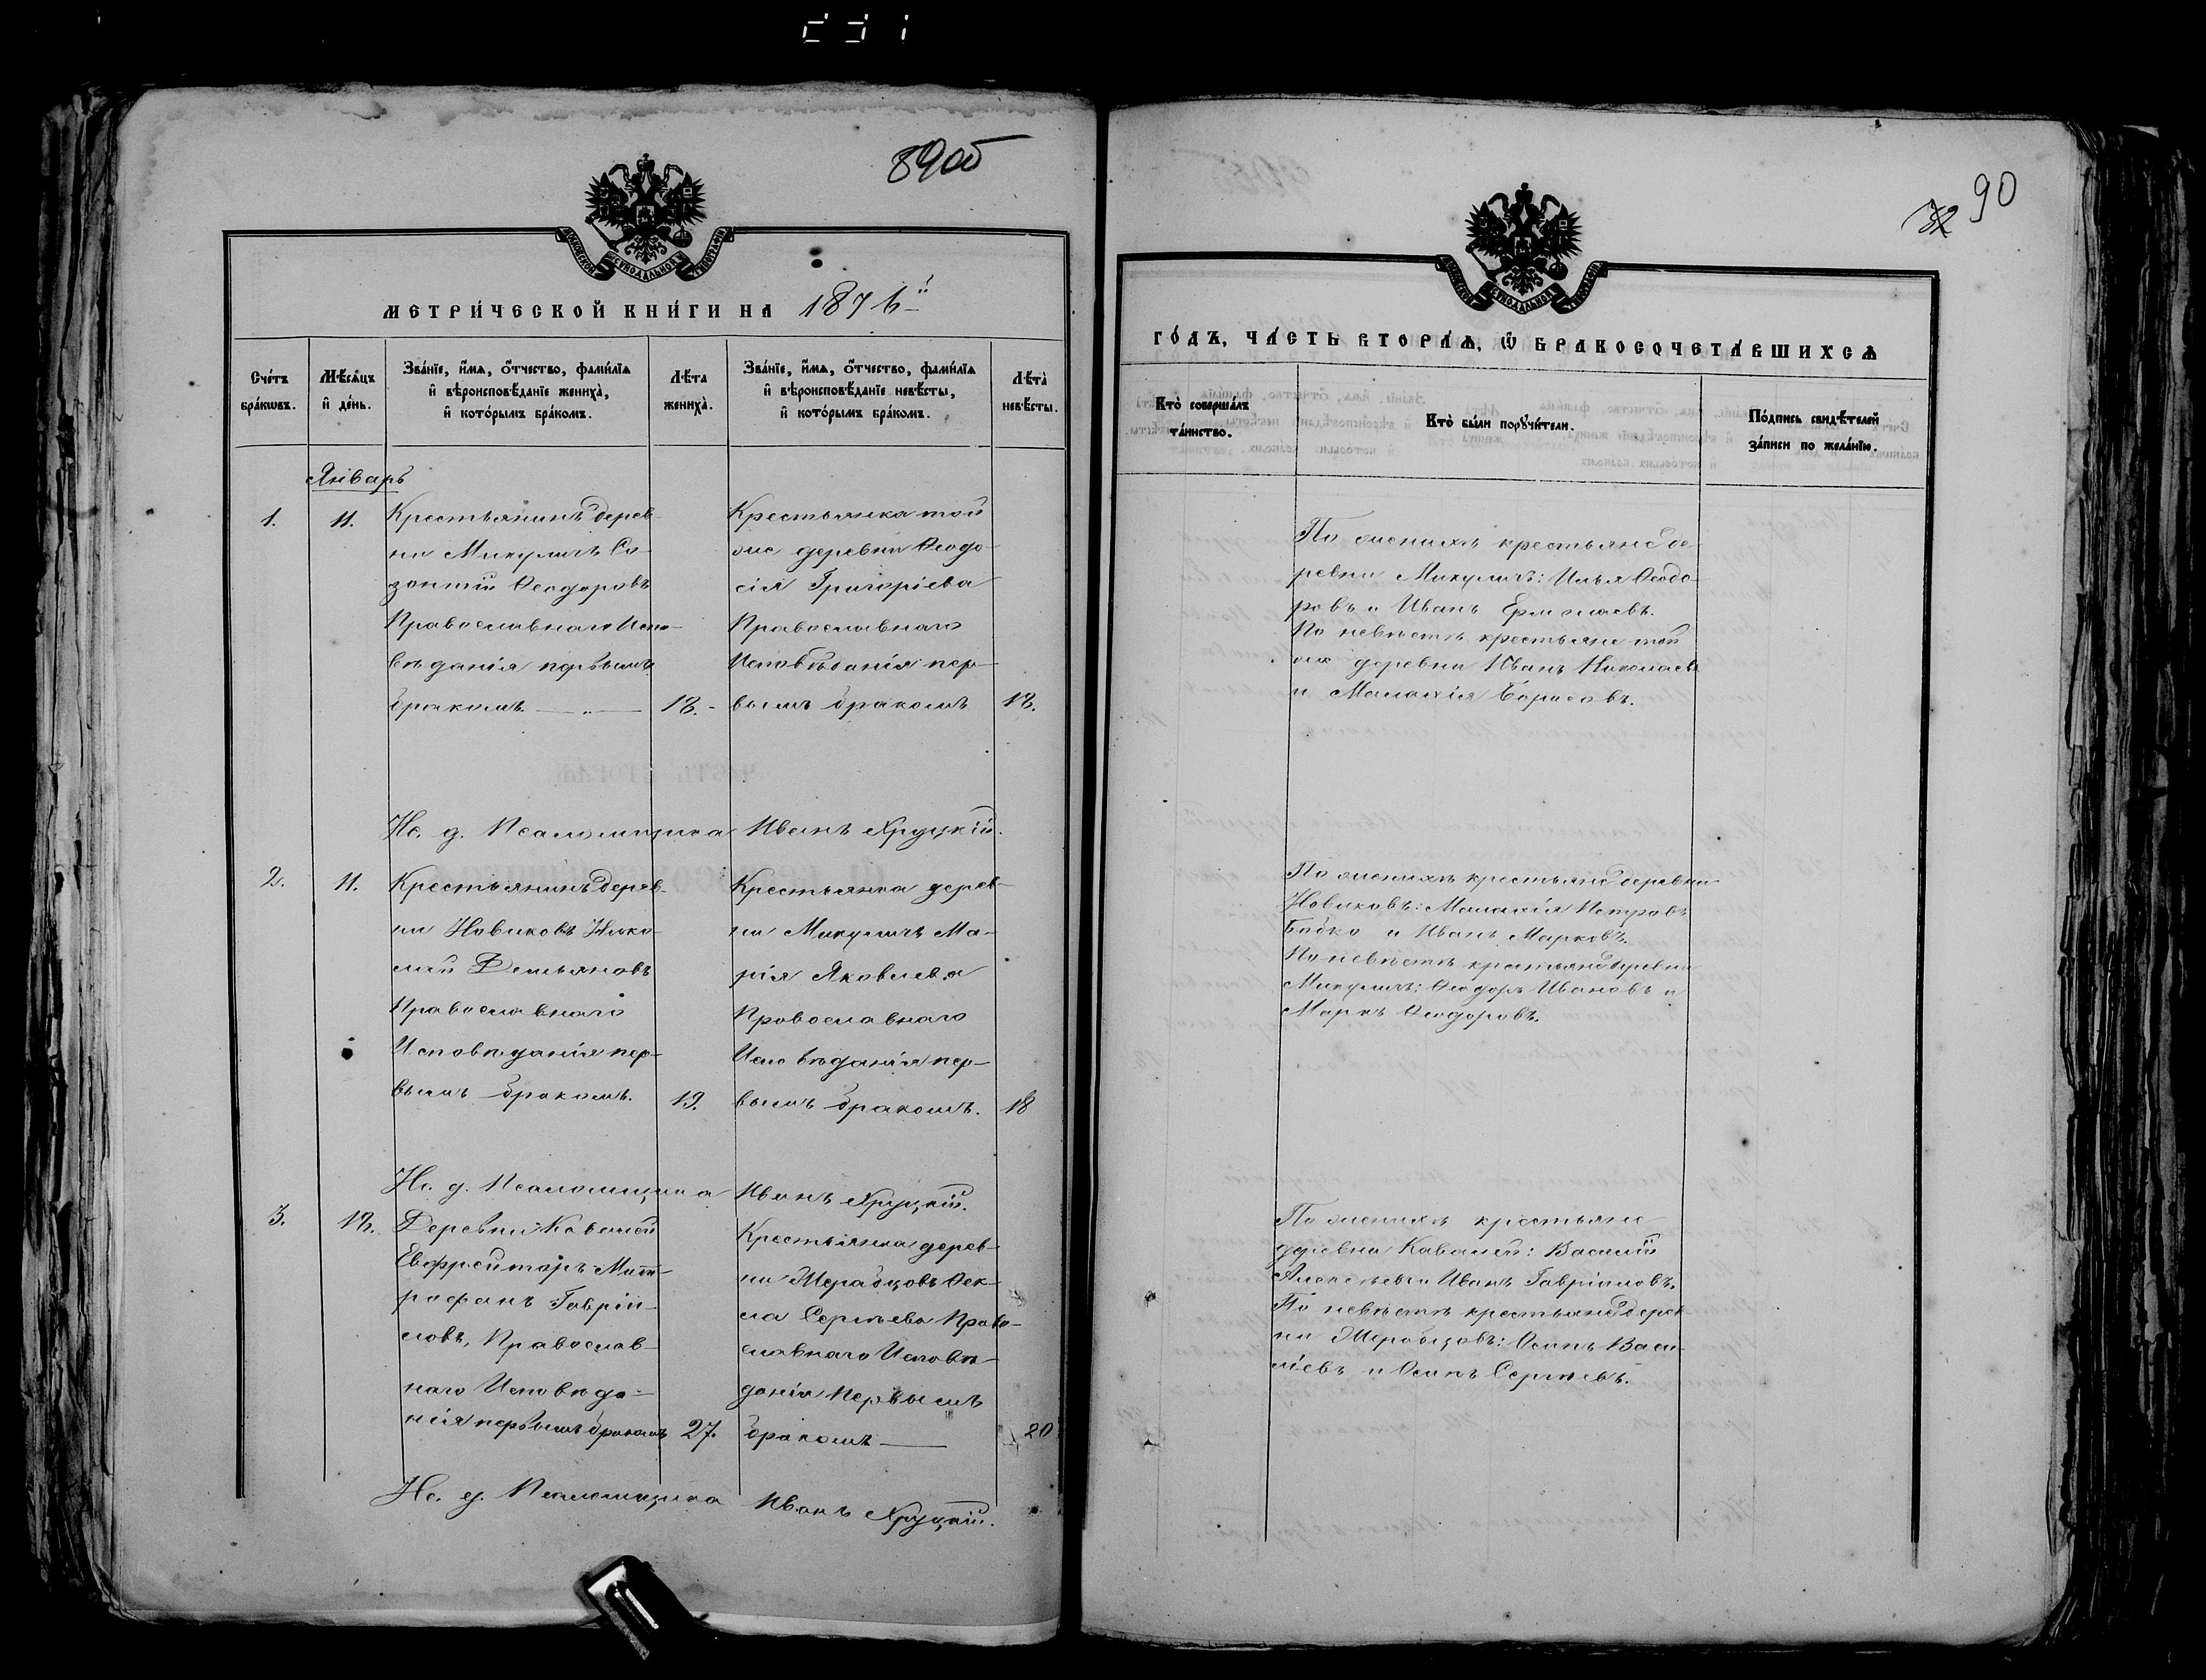 89об
МЕТРИ́ЧЕСКОЙ КНИ́ГИ НА 1876й
Сче́тъ бра́кѡвъ.
Мѣ́сѧцъ и҆ де́нь.
Зва́нїе, и҆́мѧ, ѻ҆́тчество, фами́лїѧ и҆ вѣроисповѣ́данїе жениха̀, и҆ кото́рымъ бра́комъ.
Лѣ́та жениха̀.
Зва́нїе, и҆́мѧ, ѻ҆́тчество, фами́лїѧ и҆ вѣроисповѣ́данїе невѣ́сты, и҆ кото́рымъ бра́комъ.
Лѣ́та невѣ́сты.
Январь
1.
11.
Крестьянинъ дерев-
ни Микуличъ Со-
зонтій Ѳеодоровъ
Православнаго Испо-
вѣданія первымъ
бракомъ.
18.
Крестьянка той
же деревни Ѳеодо-
сія Григоріева
Православнаго
Исповѣданія пер-
вымъ бракомъ
18.
Ис. д. Псаломщика Иванъ Хруцкій.
2.
11.
Крестьянинъ дерев-
ни Новиковъ Нико-
лай Демьяновъ
Православнаго
Исповѣданія пер-
вымъ бракомъ.
19.
Крестьянка дерев-
ни Микуличъ Ма-
рія Яковлева
Православнаго
Исповѣданія пер-
вымъ бракомъ.
18
Ис. д. Псаломщика Иванъ Хруцкій.
3.
18.
Деревни Ковалей
Евфрейторъ Мит-
рофанъ Гавріи-
ловъ, Православ-
наго Исповѣда-
нія первымъ бракомъ
27.
Крестьянка дерев-
ни Жерабцовъ Ѳек-
ла Сергѣева Право-
славнаго Исповѣ-
данія Первымъ
бракомъ
20
Ис. д. Псаломщика Иванъ Хруцкій.
32 90
ГО́ДЪ, ЧА́СТЬ ВТОРА́Ѧ, Ѽ БРАКОСОЧЕТА́ВШИХСѦ
Кто̀ соверша́лъ та́инство.
Кто̀ бы́ли порꙋчи́тели.
По́дпись свидѣ́телей за́писи по жела́нїю.
По женихѣ крестьяне де-
ревни Микуличъ: Илья Ѳеодо-
ровъ и Иванъ Ермолаевъ.
По невѣстѣ крестьяне той
же деревни Иванъ Николаевъ
и Малахія Борисовъ.
По женихѣ крестьяне деревни
Новиковъ: Малахія Петровъ
Бобко и Иванъ Марковъ.
По невѣстѣ крестьяне деревни
Микуличъ: Ѳеодоръ Ивановъ и
Маркъ Ѳеодоровъ.
По женихѣ крестьяне
деревни Ковалей: Василій
Алексѣевъ и Иванъ Гавріиловъ.
По невѣстѣ крестьяне дерев-
ни Жеробцовъ: Осипъ Васи-
ліевъ и Осипъ Сергѣевъ.